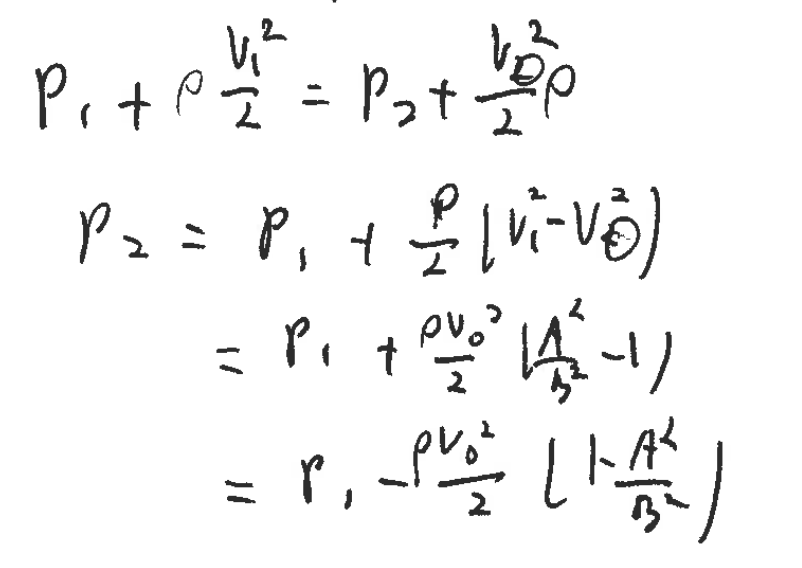 P₁ + ρ V₁²/2 = P₂ + V₀²/2 ρ
P₂ = P₁ + ρ/2 (V₁² - V₀²)
= P₁ + ρV₀²/2 (A²/B² - 1)
= P₁ - ρV₀²/2 (1 - A²/B²)